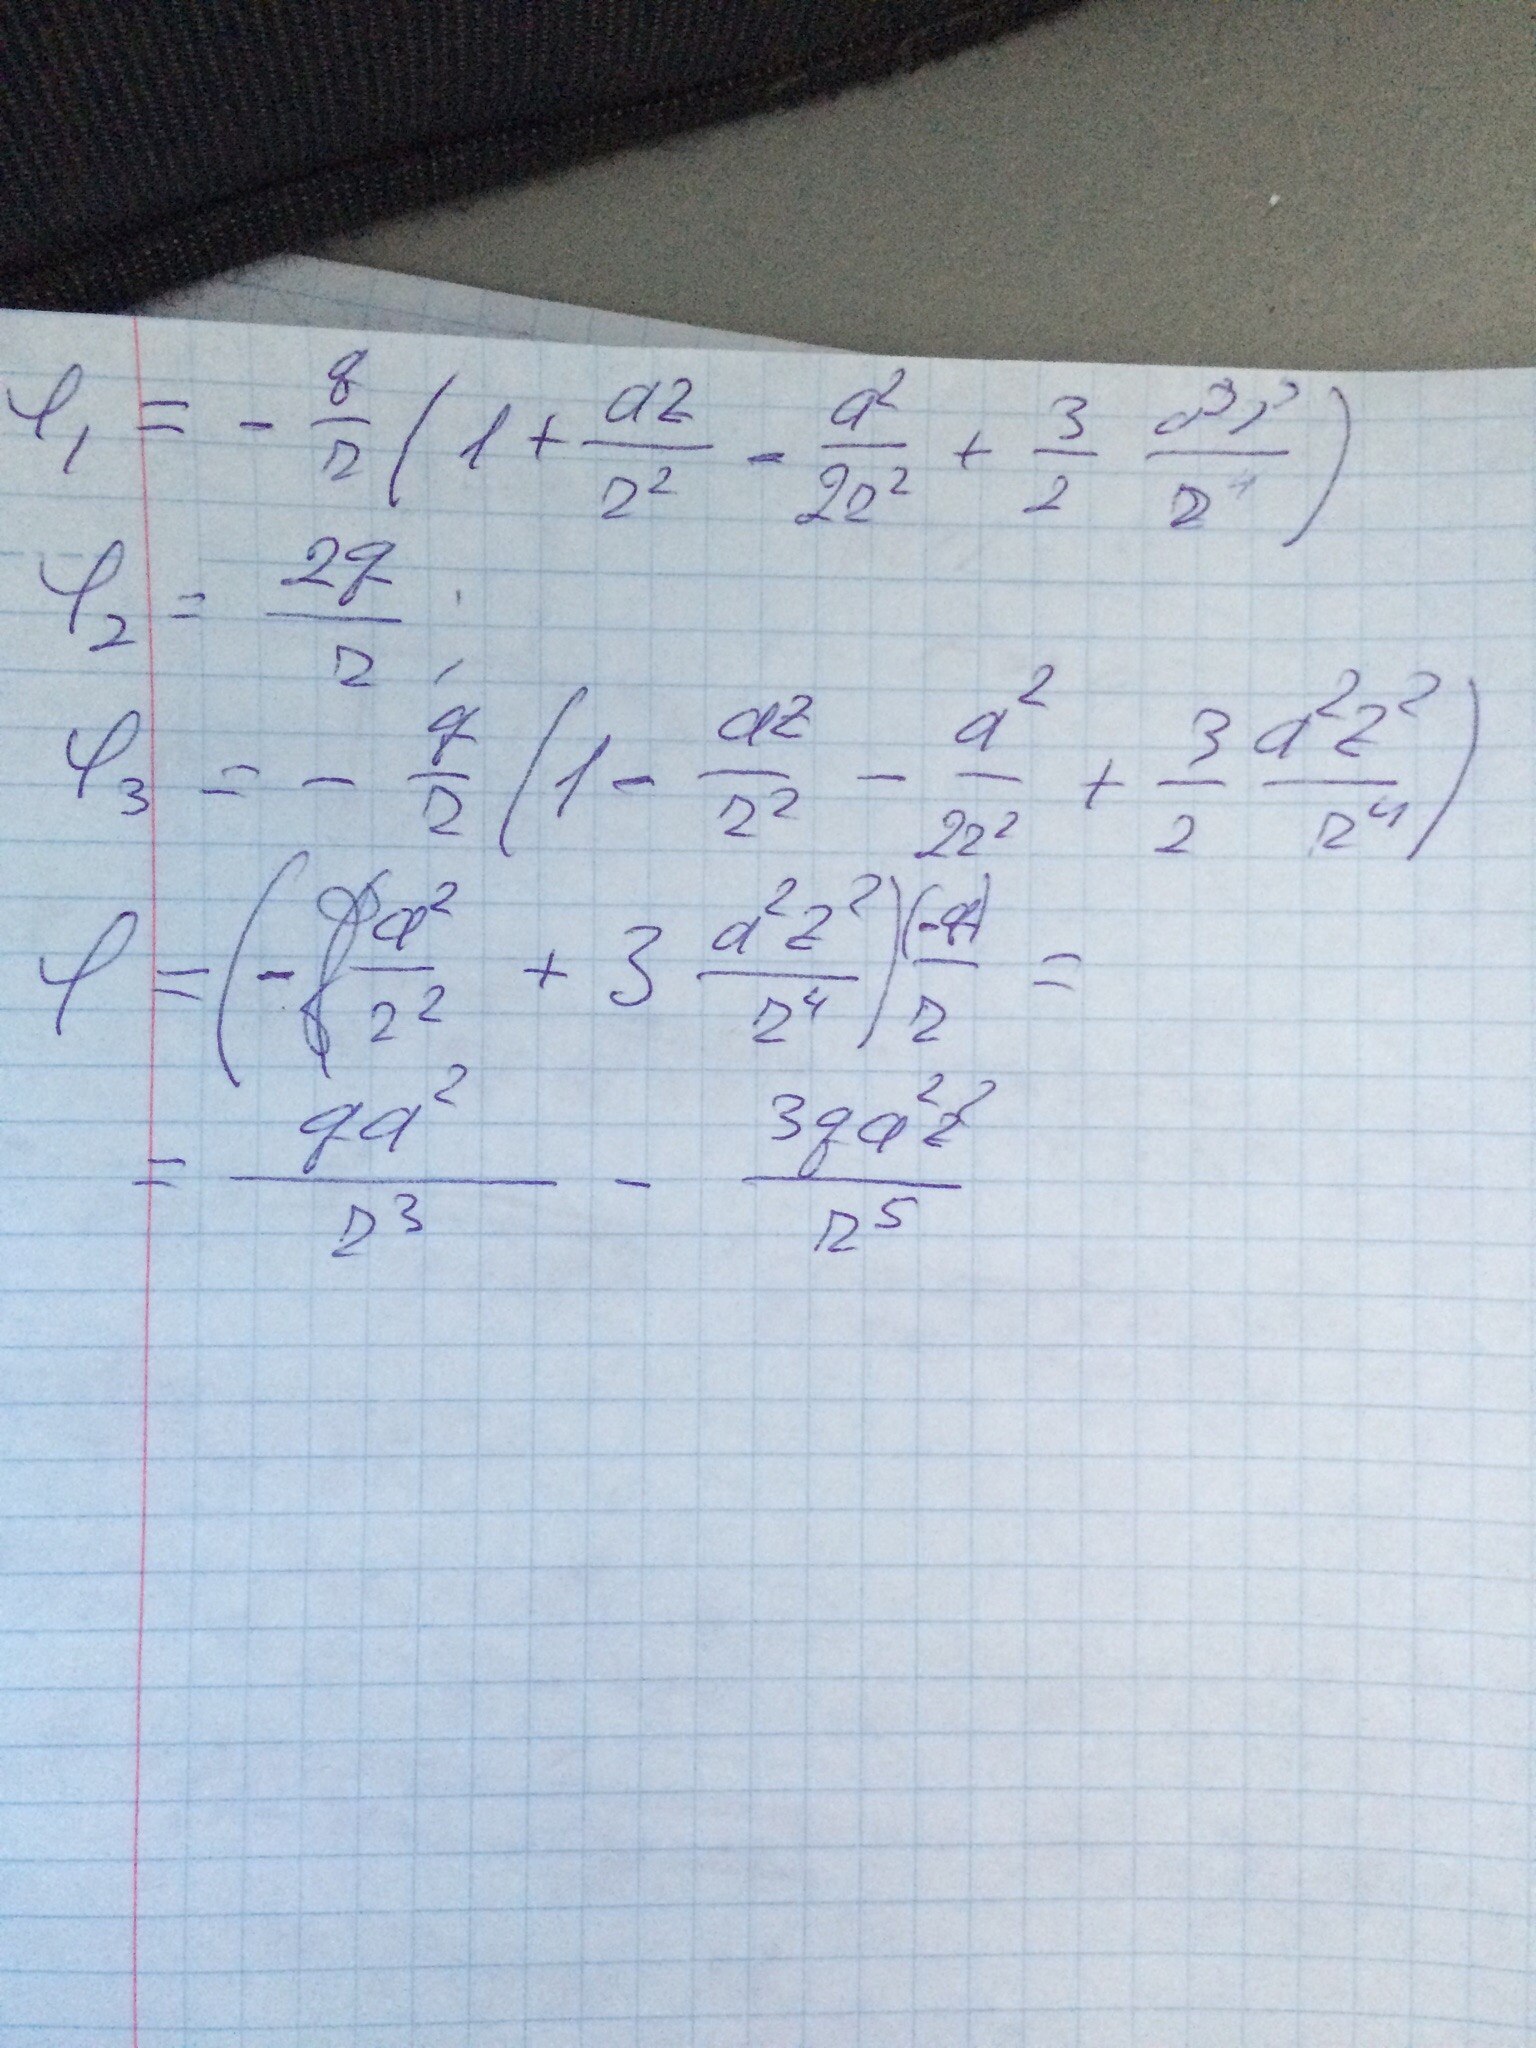 φ₁ = - q/r (1 + az/r² - a²/2r² + 3/2 /r⁴)
φ₂ = 2q/r ;
φ₃ = - q/r (1 - az/r² - a²/2r² + 3/2 a²z²/r⁴)
φ = (- a²/r² + 3 a²z²/r⁴) (-q)/r =
= qa²/r³ - 3qa²z²/r⁵